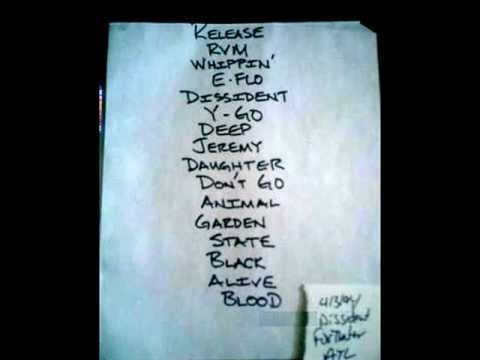 RELEASE
RVM
WHIPPIN'
E-FLO
DISSIDENT
Y-GO
DEEP
JEREMY
DAUGHTER
DON'T GO
ANIMAL
GARDEN
STATE
BLACK
ALIVE
BLOOD
4/3/94
Dissident
Fox Theater
ATL